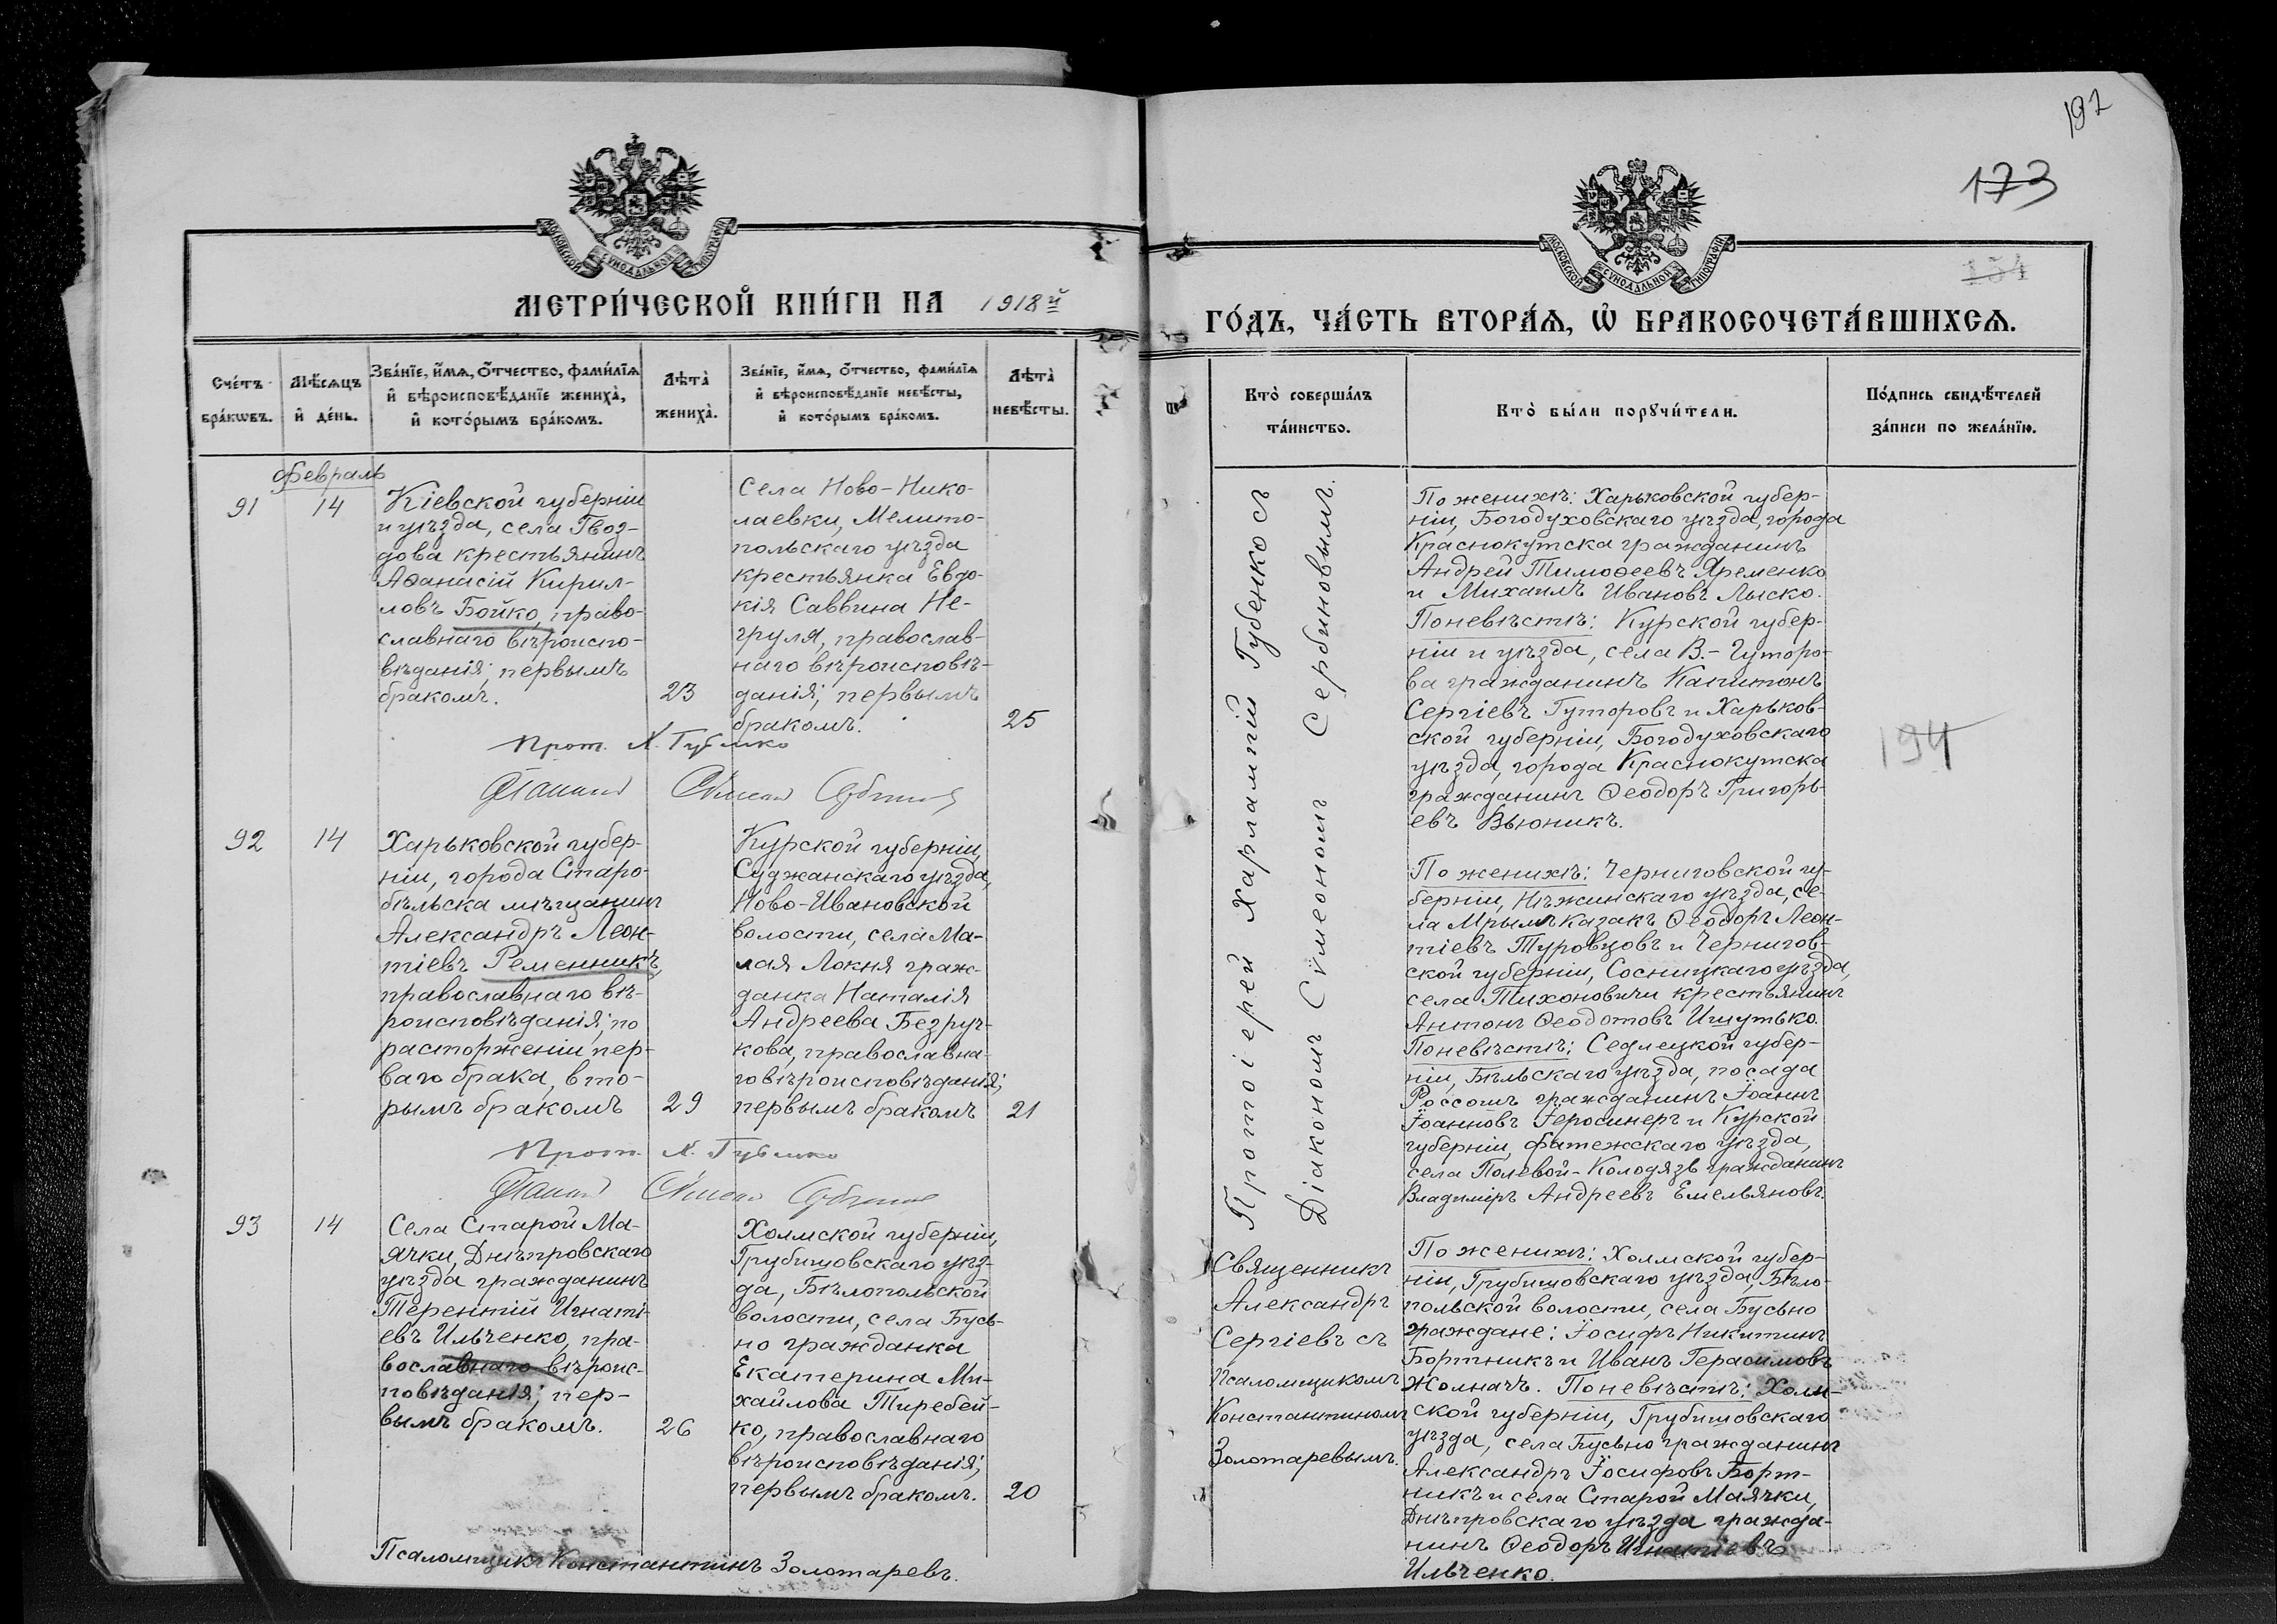 197
173
154
МОСКОВСКОЙ СУНОДАЛЬНОЙ ТИПОГРАФІИ
МОСКОВСКОЙ СУНОДАЛЬНОЙ ТИПОГРАФІИ
МЕТРИ́ЧЕСКОЙ КНИ́ГИ НА 1918й
ГО́ДЪ, ЧА́СТЬ ВТОРА́Ѧ, Ѡ҆ БРАКОСОЧЕТА́ВШИХСѦ.
Сче́тъ
бра́кѡвъ.
Мѣ́сѧцъ
и҆ де́нь.
Зва́нїе, и҆́мѧ, ѻ҆́тчество, фами́лїѧ
и҆ вѣроисповѣ́данїе жениха̀,
и҆ кото́рымъ бра́комъ.
Лѣта̀
жениха̀.
Зва́нїе, и҆́мѧ, ѻ҆́тчество, фами́лїѧ
и҆ вѣроисповѣ́данїе невѣ́сты,
и҆ кото́рымъ бра́комъ.
Лѣта̀
невѣ́сты.
Кто̀ соверша́лъ
та́инство.
Кто̀ бы́ли порꙋчи́тели.
По́дпись свидѣ́телей
за́писи по жела́нїю.
Февраль
91
14
Кіевской губерніи
и уѣзда, села Гвоз-
дова крестьянинъ
Аѳанасій Кирил-
ловъ Бойко, право-
славнаго вѣроиспо-
вѣданія; первымъ
бракомъ.
23
Села Ново-Нико-
лаевки, Мелито-
польскаго уѣзда
крестьянка Евдо-
кія Саввина Не-
груля, православ-
наго вѣроисповѣ-
данія; первымъ
бракомъ.
25
Прот. Х. Губенко
Протоіерей Харлампій Губенко съ
Діакономъ Сѵмеономъ Сербиновымъ.
По женихѣ: Харьковской губер-
ніи, Богодуховскаго уѣзда, города
Краснокутска гражданинъ
Андрей Тимоѳеевъ Яременко
и Михаилъ Ивановъ Лыско.
Поневѣстѣ: Курской губер-
ніи и уѣзда, села В.- Гуторо-
ва гражданинъ Капитонъ
Сергіевъ Гуторовъ и Харьков-
ской губерніи, Богодуховскаго
уѣзда, города Краснокутска
гражданинъ Ѳеодоръ Григорь-
евъ Вьюникъ.
194
92
14
Харьковской губер-
ніи, города Старо-
бѣльска мѣщанинъ
Александръ Леон-
тіевъ Ременникъ,
православнаго вѣ-
роисповѣданія; по
расторженіи пер-
ваго брака, вто-
рымъ бракомъ
29
Курской губерніи,
Суджанскаго уѣзда,
Ново-Ивановской
волости, села Ма-
лая Локня граж-
данка Наталія
Андреева Безруч-
кова, православна-
го вѣроисповѣданія;
первымъ бракомъ
21
Прот. Х. Губенко
По женихѣ: Черниговской гу-
берніи, Нѣжинскаго уѣзда, се-
ла Мрымъ казакъ Ѳеодоръ Леон-
тіевъ Туровцовъ и Чернигов-
ской губерніи, Сосницкаго уѣзда,
села Тихоновичи крестьянинъ
Антонъ Ѳеодотовъ Ишутько.
Поневѣстѣ: Седлецкой губер-
ніи, Бѣльскаго уѣзда, посада
Россошъ гражданинъ Іоаннъ
Іоанновъ Геросинеръ и Курской
губерніи, Фатежскаго уѣзда,
села Полевой-Колодязь гражданинъ
Владиміръ Андреевъ Емельяновъ.
93
14
Села Старой Ма-
ячки, Днѣпровскаго
уѣзда гражданинъ
Терентій Игнаті-
евъ Ильченко, пра-
вославнаго вѣроис-
повѣданія; пер-
вымъ бракомъ.
26
Холмской губерніи,
Грубишовскаго уѣз-
да, Бѣлопольской
волости, села Бусь-
но гражданка
Екатерина Ми-
хайлова Теребей-
ко, православнаго
вѣроисповѣданія;
первымъ бракомъ.
20
Священникъ
Александръ
Сергіевъ съ
Псаломщикомъ
Константиномъ
Золотаревымъ.
По женихѣ: Холмской губер-
ніи, Грубишовскаго уѣзда, Бѣло-
польской волости, села Бусьно
граждане: Іосифъ Никитинъ
Бортникъ и Иванъ Герасимовъ
Жолначъ. Поневѣстѣ: Холм-
ской губерніи, Грубишовскаго
уѣзда, села Бусьно гражданинъ
Александръ Іосифовъ Борт-
никъ и села Старой Маячки,
Днѣпровскаго уѣзда гражда-
нинъ Ѳеодоръ Игнатіевъ
Ильченко.
Псаломщикъ Константинъ Золотаревъ.